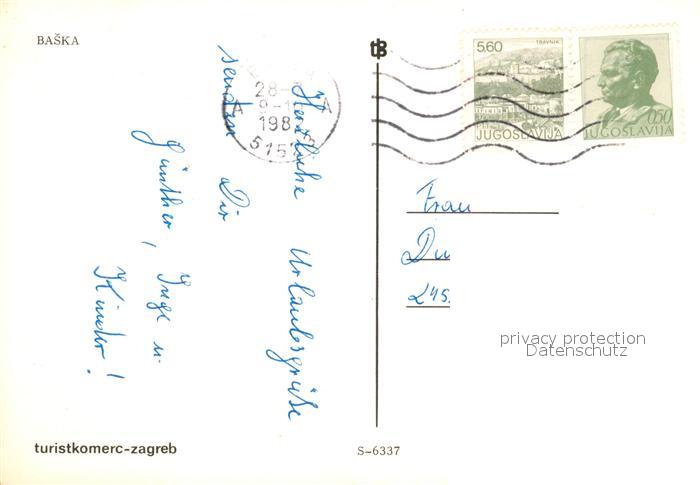 BAŠKA
Herzliche Urlaubsgrüße
senden Dir
Günther, Inge u.
Kinder!
turistkomerc-zagreb
tB
28-
9-1
198
A A
5152
5.60 TRAVNIK
JUGOSLAVIJA
0.50
JUGOSLAVIJA
Frau
Du
245.
privacy protection
Datenschutz
S-6337